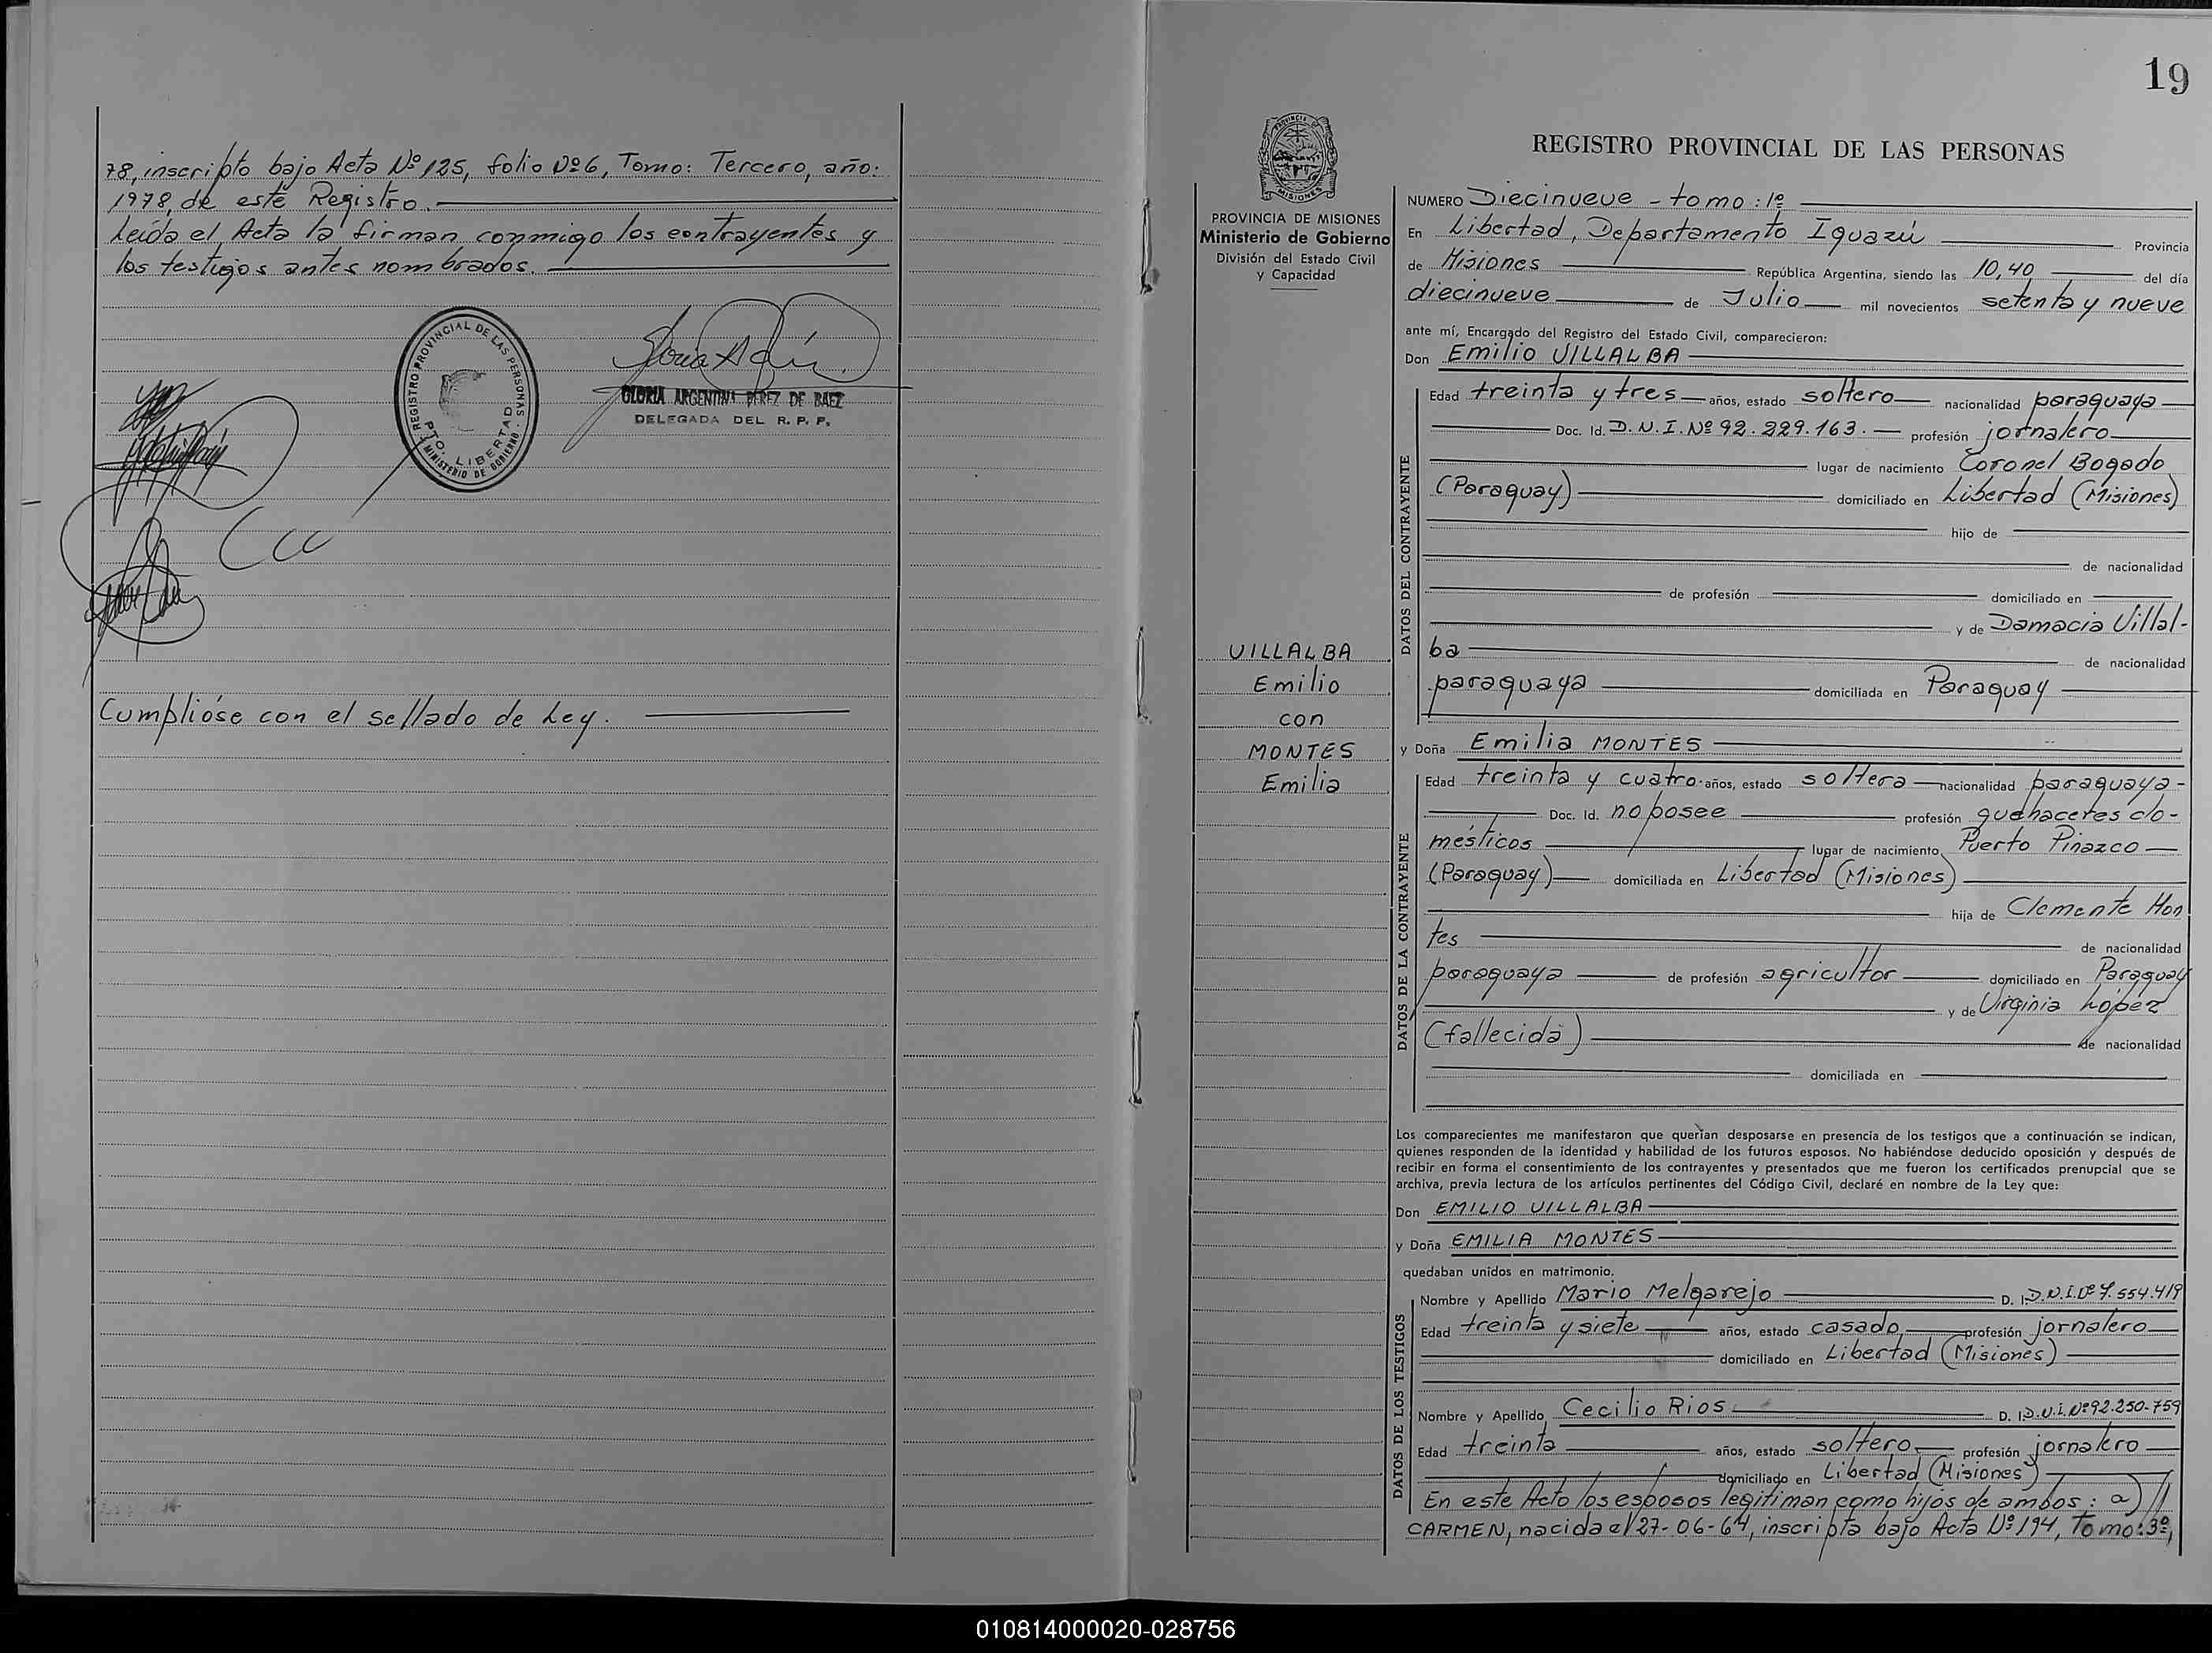 78, inscripto bajo Acta Nº 125, folio Nº 6, Tomo: Tercero, año:
1978, de este Registro.
Leída el Acta la firman conmigo los contrayentes y
los testigos antes nombrados.
REGISTRO PROVINCIAL DE LAS PERSONAS
PTO. LIBERTAD
MINISTERIO DE GOBIERNO
GLORIA ARGENTINA PEREZ DE BAEZ
DELEGADA DEL R. P. P.
Cumplióse con el sellado de Ley.
19
PROVINCIA DE
MISIONES
PROVINCIA DE MISIONES
Ministerio de Gobierno
División del Estado Civil
y Capacidad
VILLALBA
Emilio
con
MONTES
Emilia
REGISTRO PROVINCIAL DE LAS PERSONAS
NUMERO Diecinueve - tomo: 1º
En Libertad, Departamento Iguazú Provincia
de Misiones República Argentina, siendo las 10,40 del día
diecinueve de Julio mil novecientos setenta y nueve
ante mí, Encargado del Registro del Estado Civil, comparecieron:
Don Emilio VILLALBA
DATOS DEL CONTRAYENTE
Edad treinta y tres años, estado soltero nacionalidad paraguaya
Doc. Id. D.N.I. Nº 92.229.163. profesión jornalero
lugar de nacimiento Coronel Bogado
(Paraguay) domiciliado en Libertad (Misiones)
hijo de
de nacionalidad
de profesión domiciliado en
y de Damacia Villal-
ba de nacionalidad
paraguaya domiciliada en Paraguay
y Doña Emilia MONTES
DATOS DE LA CONTRAYENTE
Edad treinta y cuatro años, estado soltera nacionalidad paraguaya-
Doc. Id. no posee profesión quehaceres do-
mésticos lugar de nacimiento Puerto Pinazco
(Paraguay) domiciliada en Libertad (Misiones)
hija de Clemente Mon
tes de nacionalidad
paraguaya de profesión agricultor domiciliado en Paraguay
y de Virginia López
(fallecida) de nacionalidad
domiciliada en
Los comparecientes me manifestaron que querían desposarse en presencia de los testigos que a continuación se indican,
quienes responden de la identidad y habilidad de los futuros esposos. No habiéndose deducido oposición y después de
recibir en forma el consentimiento de los contrayentes y presentados que me fueron los certificados prenupcial que se
archiva, previa lectura de los artículos pertinentes del Código Civil, declaré en nombre de la Ley que:
Don EMILIO VILLALBA
y Doña EMILIA MONTES
quedaban unidos en matrimonio.
DATOS DE LOS TESTIGOS
Nombre y Apellido Mario Melgarejo D. I. D.N.I. Nº 7.554.419
Edad treinta y siete años, estado casado profesión jornalero
domiciliado en Libertad (Misiones)
Nombre y Apellido Cecilio Rios D. I. D.N.I. Nº 92.250.759
Edad treinta años, estado soltero profesión jornalero
domiciliado en Libertad (Misiones)
En este Acto los esposos legitiman como hijos de ambos: a)
CARMEN, nacida el 27-06-64, inscripta bajo Acta Nº 194, Tomo: 3º,
010814000020-028756